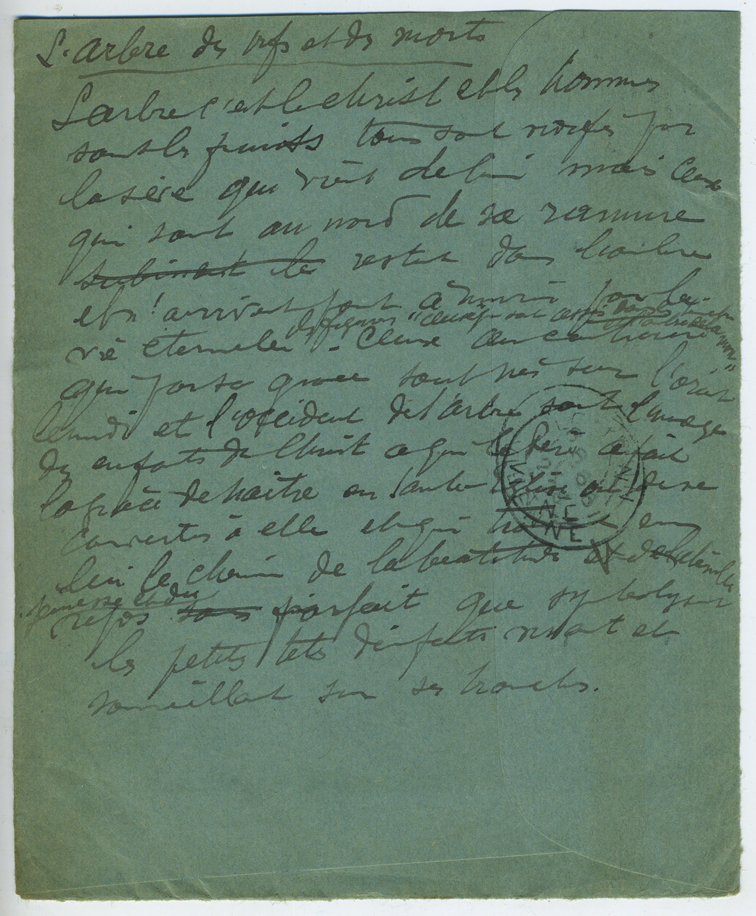 L'arbre des vifs et des morts
L'arbre c'est le christ et les hommes
sont les fruits tous sont nourris par
la sève qui vient de lui mais ceux
qui sont au nord de sa ramure
subissent les restent dans l'ombre
et n'arrivent point à mûrir pour la
ils figurent "ceux qui sont assis dans
vie éternelle - Ceux au contraire
qui par sa grace sont nés sur l'orient
le midi et l'occident de l'arbre sont l'image
des enfants de Christ a qui le père a fait
la grâce de naître en
convertis à elle et qui en
lui le chemin de la béatitude et de
jeunesse et du
repos parfait que symbolysent
les petites têtes d'enfants riant et
sommeillant sur ses branches.
VIENNE